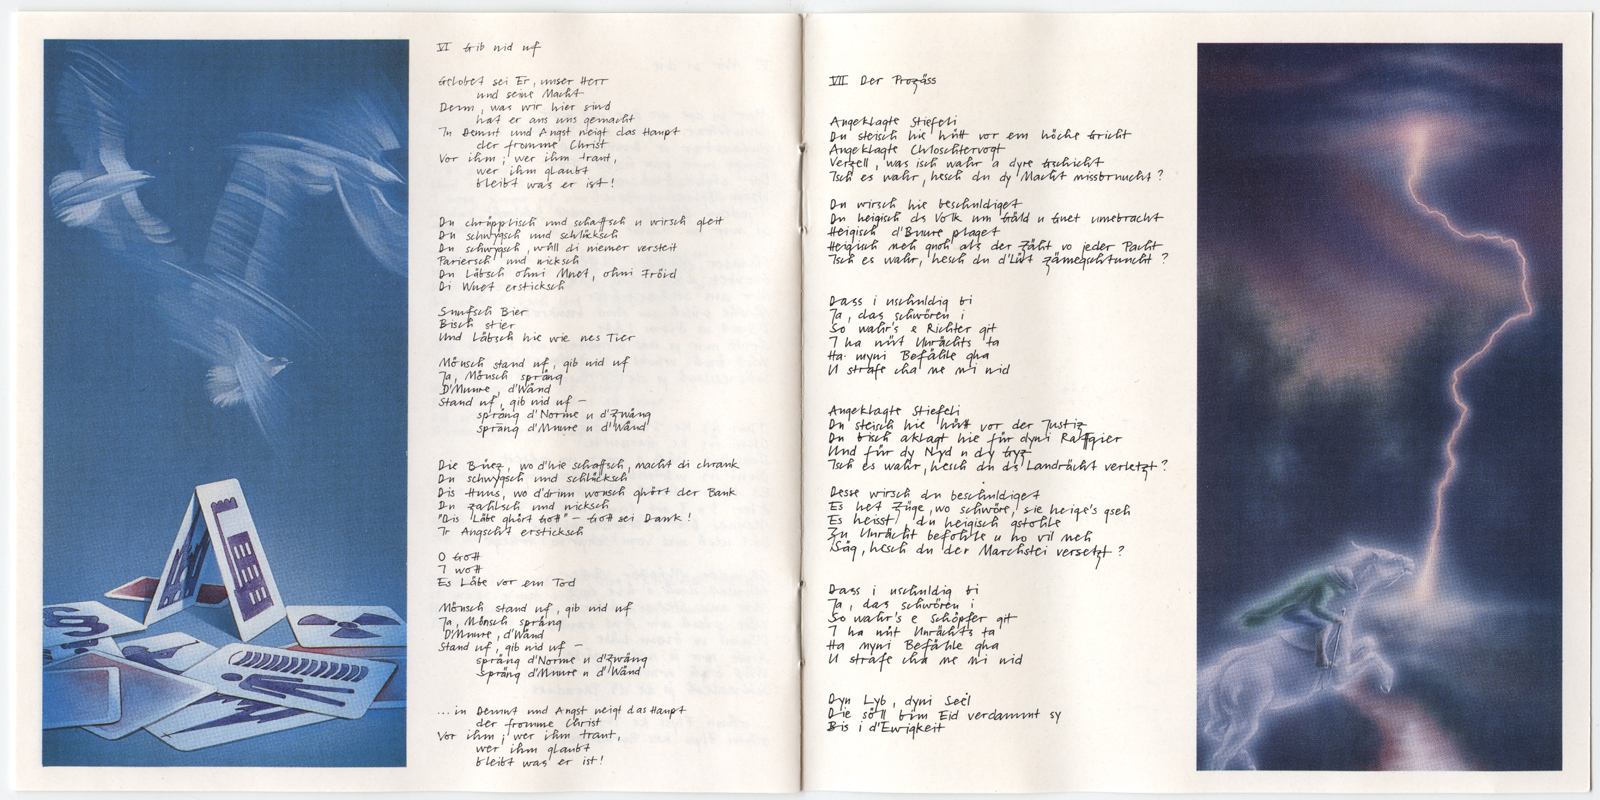 VI Gib nid uf
Gelobet sei Er, unser Herr
und seine Macht
Denn, was wir hier sind
hat er aus uns gemacht
In Demut und Angst neigt das Haupt
der fromme Christ
Vor ihm; wer ihm traut,
wer ihm glaubt
bleibt was er ist!
Du chrüpplisch und schaffsch u wirsch gleit
Du schwygsch und schlücksch
Du schwygsch, wüll di niemer versteit
Pariersch und nicksch
Du läbsch ohni Muet, ohni Fröid
Di Wuet ersticksch
Suufsch Bier
Bisch stier
Und läbsch hie wie nes Tier
Mönsch stand uf, gib nid uf
Ja, Mönsch spräng
D'Muure, d'Wänd
Stand uf, gib nid uf –
spräng d'Norme u d'Zwäng
spräng d'Muure u d'Wänd
Die Büez, wo d'hie schaffsch, macht di chrank
Du schwygsch und schlücksch
Dis Huus, wo d'drinn wonsch ghört der Bank
Du zahlsch und nicksch
"Dis Läbe ghört Gott" – Gott sei Dank!
Ir Angscht ersticksch
O Gott
I wott
Es Läbe vor em Tod
Mönsch stand uf, gib nid uf
Ja, Mönsch spräng
D'Muure, d'Wänd
Stand uf, gib nid uf –
spräng d'Norme u d'Zwäng
spräng d'Muure u d'Wänd
...in Demut und Angst neigt das Haupt
der fromme Christ
Vor ihm; wer ihm traut,
wer ihm glaubt
bleibt was er ist!
VII Der Prozäss
Angeklagte Stiefeli
Du steisch hie hütt vor em höche Gricht
Angeklagte Chloschtervogt
Verzell, was isch wahr a dyre Gschicht
Isch es wahr, hesch du dy Macht missbrucht?
Du wirsch hie beschuldiget
Du heigisch ds Volk um Gäld u Guet umebracht
Heigisch d'Buure plaget
Heigisch meh gnoh als der Zäht vo jeder Pacht
Isch es wahr, hesch du d'Lüt zämegschtuucht?
Dass i uschuldig bi
Ja, das schwören i
So wahr's e Richter git
I ha nüt Unrächts ta
Ha myni Befähle gha
U strafe cha me mi nid
Angeklagte Stiefeli
Du steisch hie hütt vor der Justiz
Du bisch aklagt hie für dyni Raffgier
Und für dy Nyd u dy Gyz
Isch es wahr, hesch du ds Landrächt verletzt?
Desse wirsch du beschuldiget
Es het Züge, wo schwöre, sie heige's gseh
Es heisst, du heigisch gstohle
Zu Unrächt befohle u no vil meh
Säg, hesch du der Marchstei versetzt?
Dass i uschuldig bi
Ja, das schwören i
So wahr's e Schöpfer git
I ha nüt Unrächts ta
Ha myni Befähle gha
U strafe cha me mi nid
Dyn Lyb, dyni Seel
Die söll bim Eid verdammt sy
Bis i d'Ewigkeit